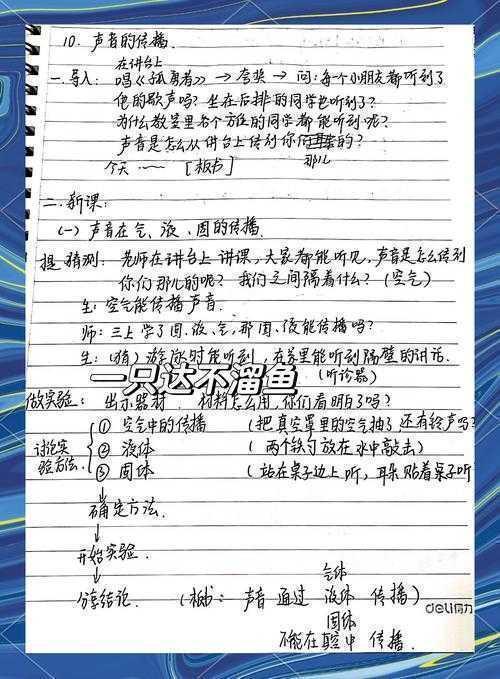 10. 声音的传播.
在讲台上
一.导入: 唱《孤勇者》→ 夸奖 → 问: 每个小朋友都听到了
他的歌声吗? 坐在后排的同学也听到了?
为什么教室里各个方位的同学都能听到呢?
声音是怎么从讲台上传到你们的?
那儿
今天 …… [板书]
二.新课:
(一) 声音在气、液、固的传播.
提 猜测: 老师在讲台上讲课,大家都能听见,声音是怎么传到
你们那儿的呢? 我们之间隔着什么?(空气)
生: 空气能传播声音.
师: 三上学了固、液、气,那固、液能传播吗?
生: (猜) 游泳时能听到,在家里能听到隔壁的讲话.
一只达不溜鱼
(听诊器)
做实验: 出示器材. 材料怎么用,你们看明白了吗?
讨论实验方法.
① 空气中的传播 (把真空罩里的空气抽了还有铃声吗?
② 液体 (两个铁勺放在水中敲击)
③ 固体 (站在桌子边上听,耳朵贴着桌子听
↓
确定方法.
↓
开始实验.
↓
气体
分享结论. (板书: 声音 通过 液体 传播)
固体
不能在真空中 传播.
deli得力